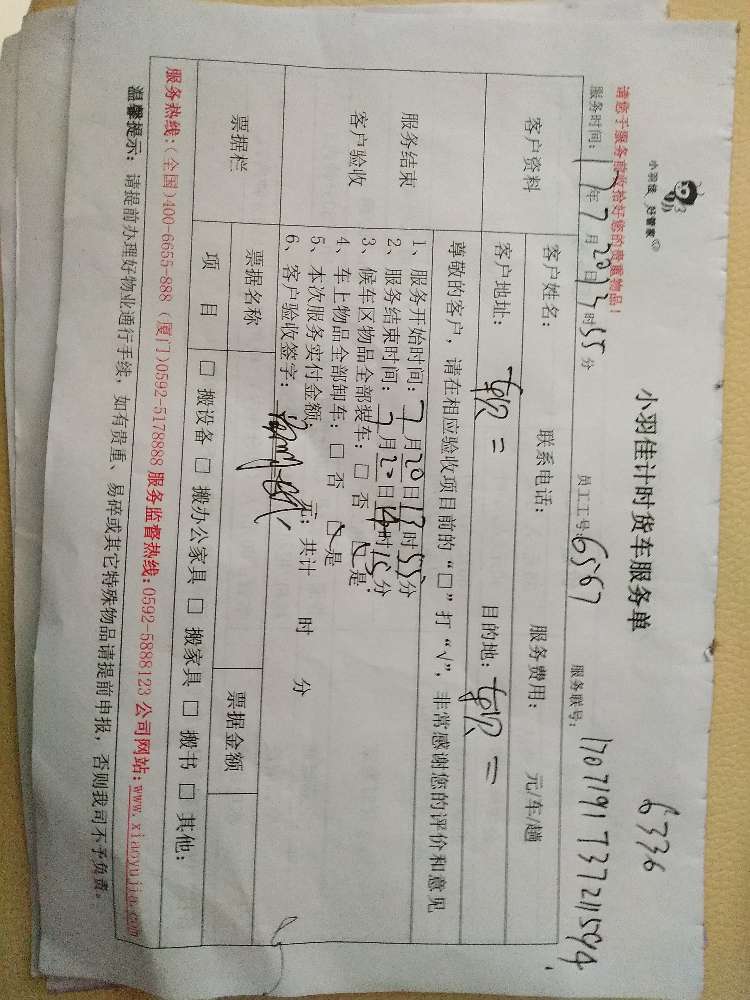 小羽佳 好管家
6336
小羽佳计时货车服务单
请您于服务前收拾好您的贵重物品！
服务时间：17年7月20日13时55分 员工工号：6567 服务联号：1707191737211594
客户资料
客户姓名： 联系电话： 服务费用： 元/车/趟
客户地址： 目的地：
服务结束
客户验收
尊敬的客户，请在相应验收项目前的“□”打“√”，非常感谢您的评价和意见
1、服务开始时间：7月20日13时55分
2、服务结束时间：7月20日14时15分
3、候车区物品全部装车：□否 □是
4、车上物品全部卸车：□否 □是
5、本次服务实付金额： 元；共计 时 分
6、客户验收签字：
票据栏
票据名称 票据金额
项目 □搬设备 □搬办公家具 □搬家具 □搬书 □其他：
服务热线：(全国)400-6655-888 (厦门)0592-5178888 服务监督热线：0592-5888123 公司网站：www.xiaoyujia.com
温馨提示：请提前办理好物业通行手续，如有贵重、易碎或其它特殊物品请提前申报，否则我司不予负责。